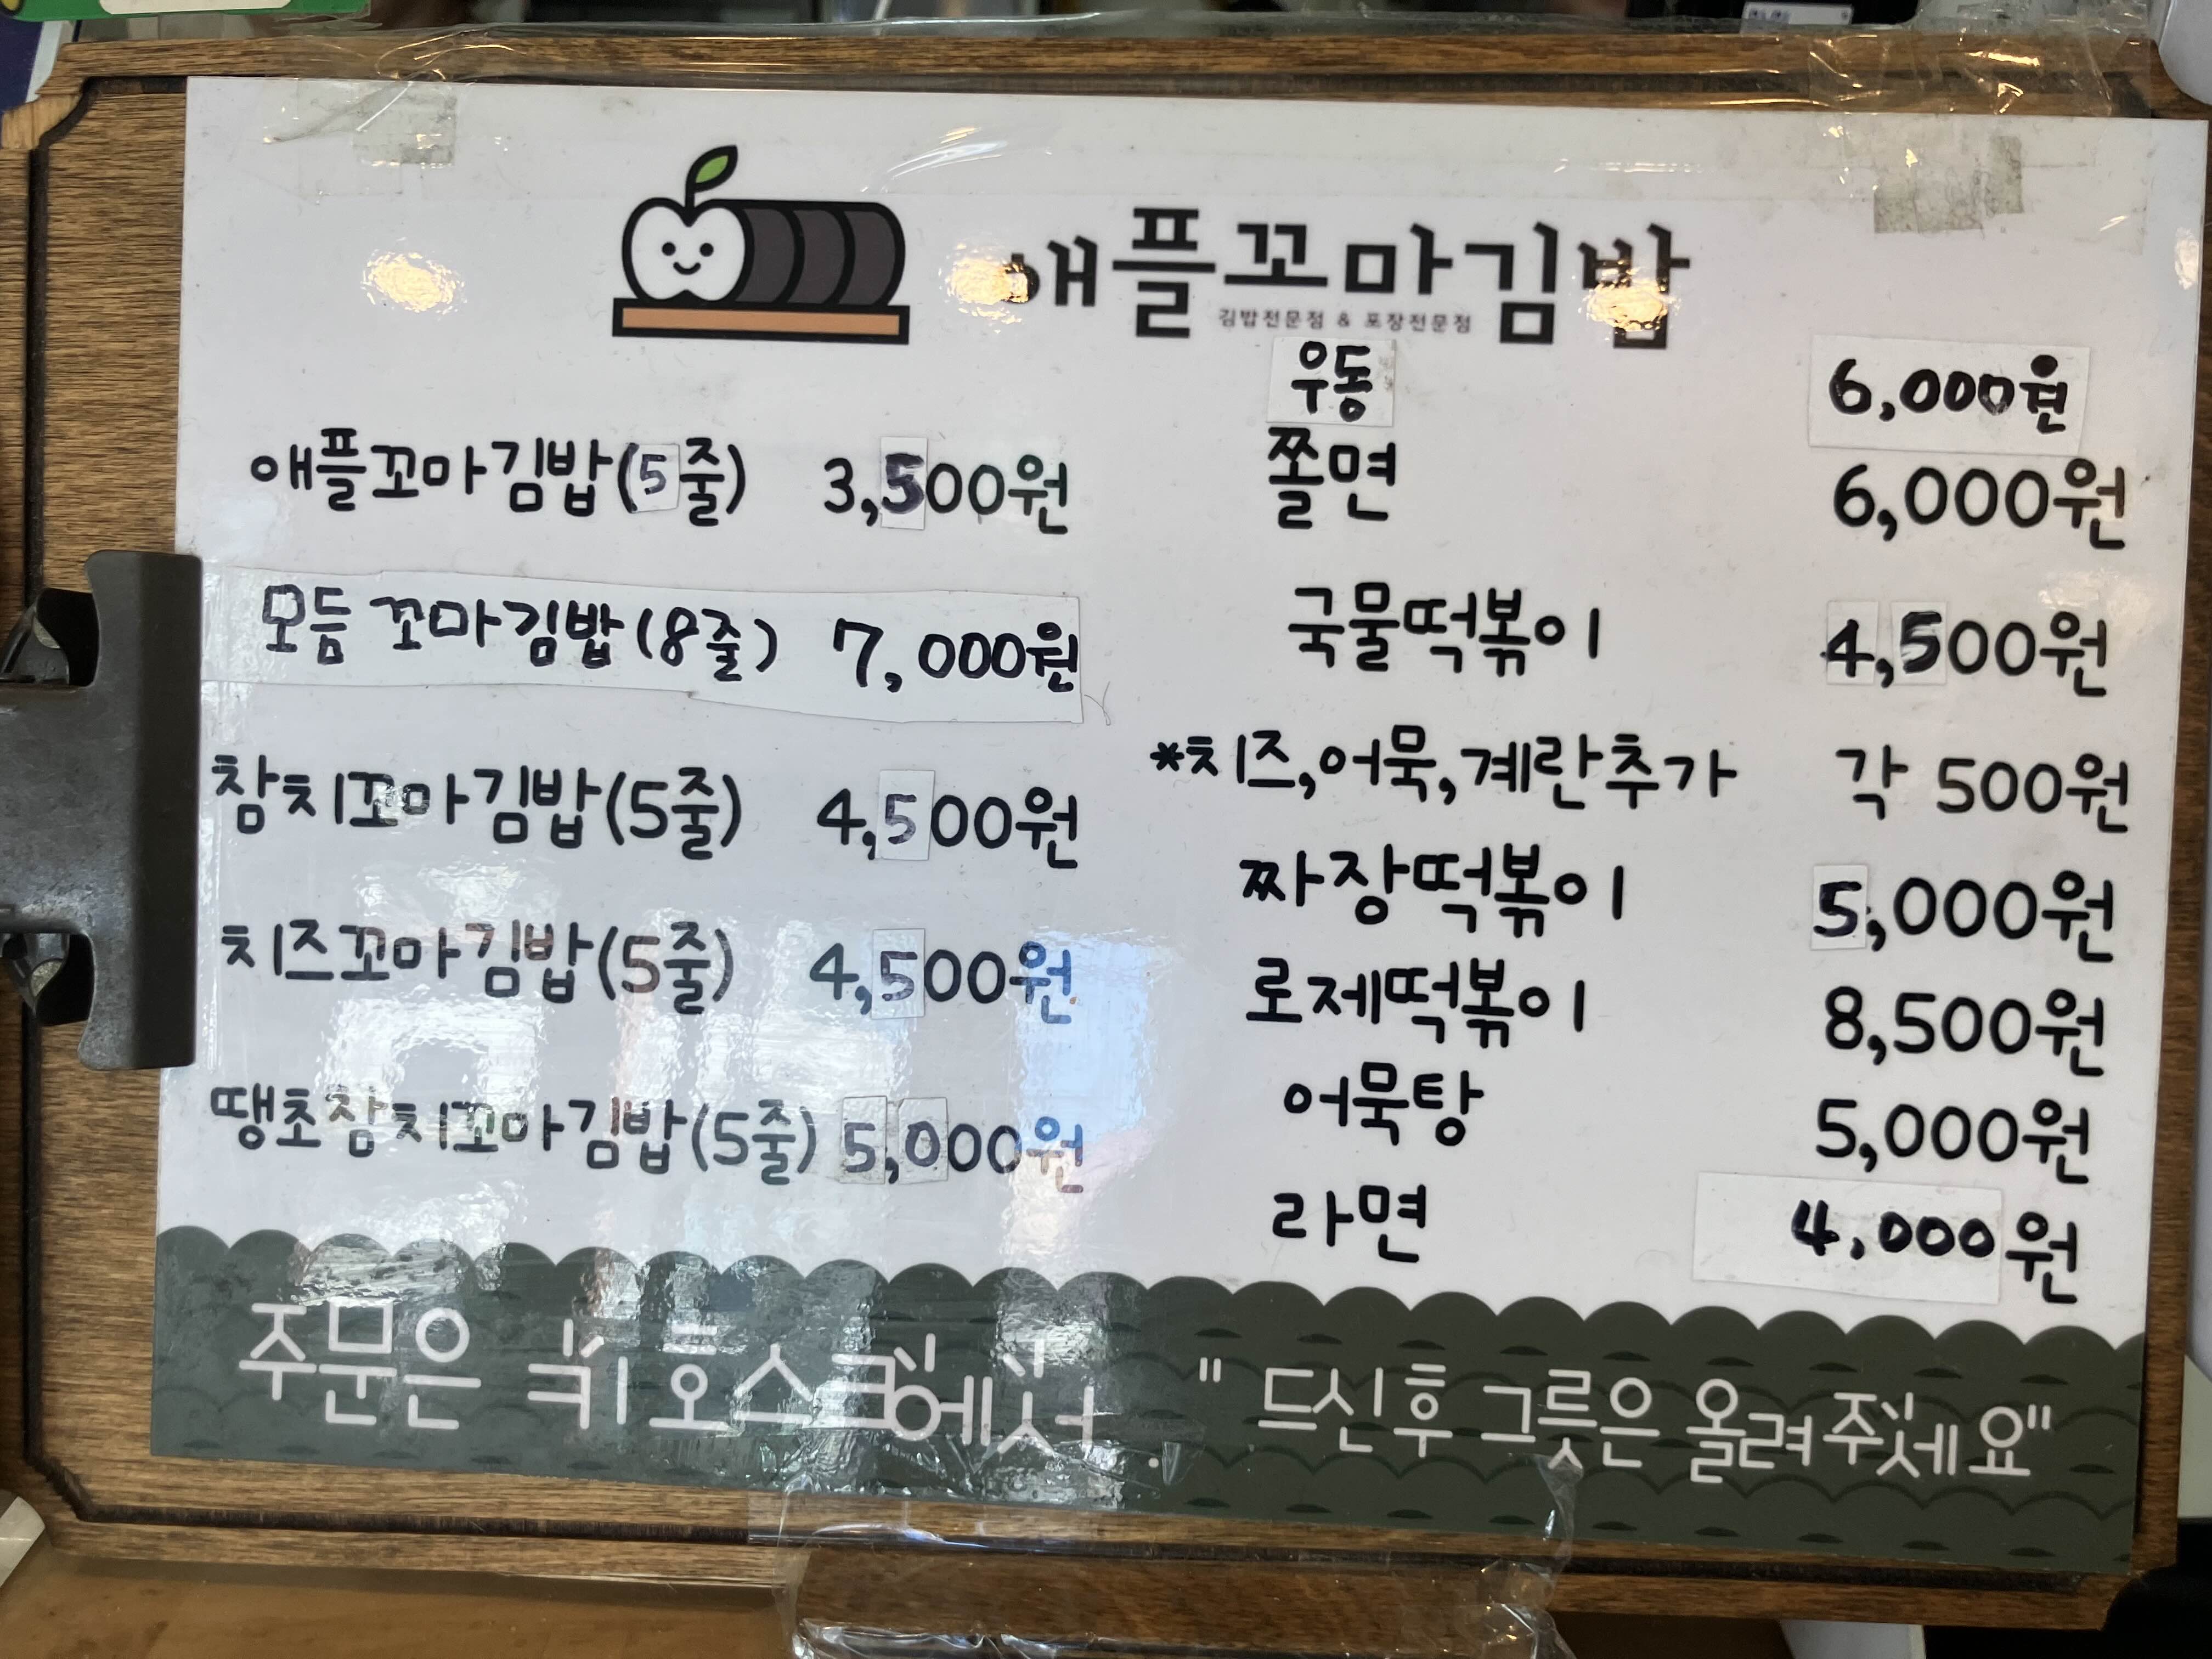 애플꼬마김밥
김밥전문점 & 포장전문점
애플꼬마김밥(5줄) 3,500원
모듬 꼬마김밥(8줄) 7,000원
참치꼬마김밥(5줄) 4,500원
치즈꼬마김밥(5줄) 4,500원
땡초참치꼬마김밥(5줄) 5,000원
우동 6,000원
쫄면 6,000원
국물떡볶이 4,500원
*치즈,어묵,계란추가 각 500원
짜장떡볶이 5,000원
로제떡볶이 8,500원
어묵탕 5,000원
라면 4,000원
주문은 키오스크에서.
"드신후 그릇은 올려주세요"